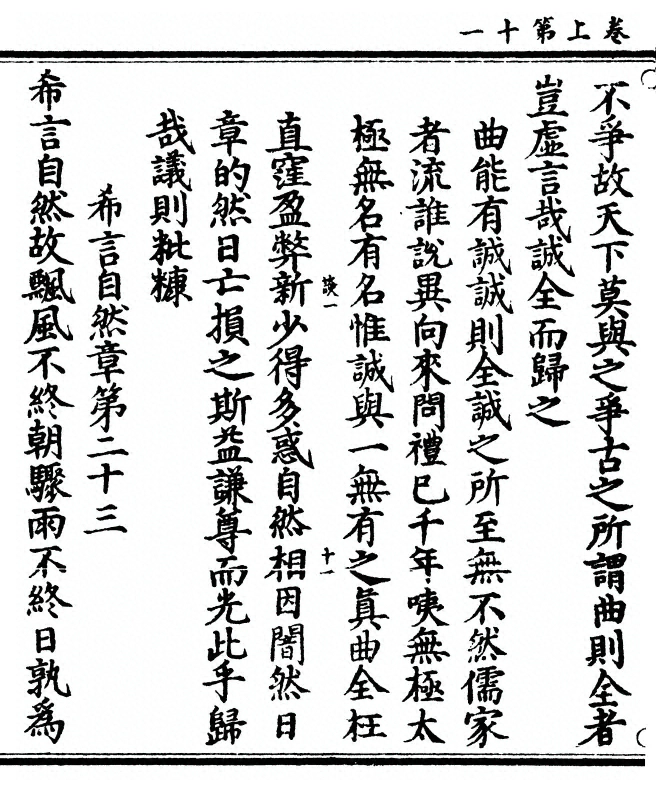 卷上第十一
不爭故天下莫與之爭古之所謂曲則全者
豈虛言哉誠全而歸之
曲能有誠誠則全誠之所至無不然儒家
者流誰說異向來問禮已千年咦無極太
極無名有名惟誠與一無有之眞曲全枉
談一
十一
直窪盈弊新少得多惑自然相因闇然日
章的然日亡損之斯益謙尊而光此乎歸
哉議則粃糠
希言自然章第二十三
希言自然故飄風不終朝驟雨不終日孰爲